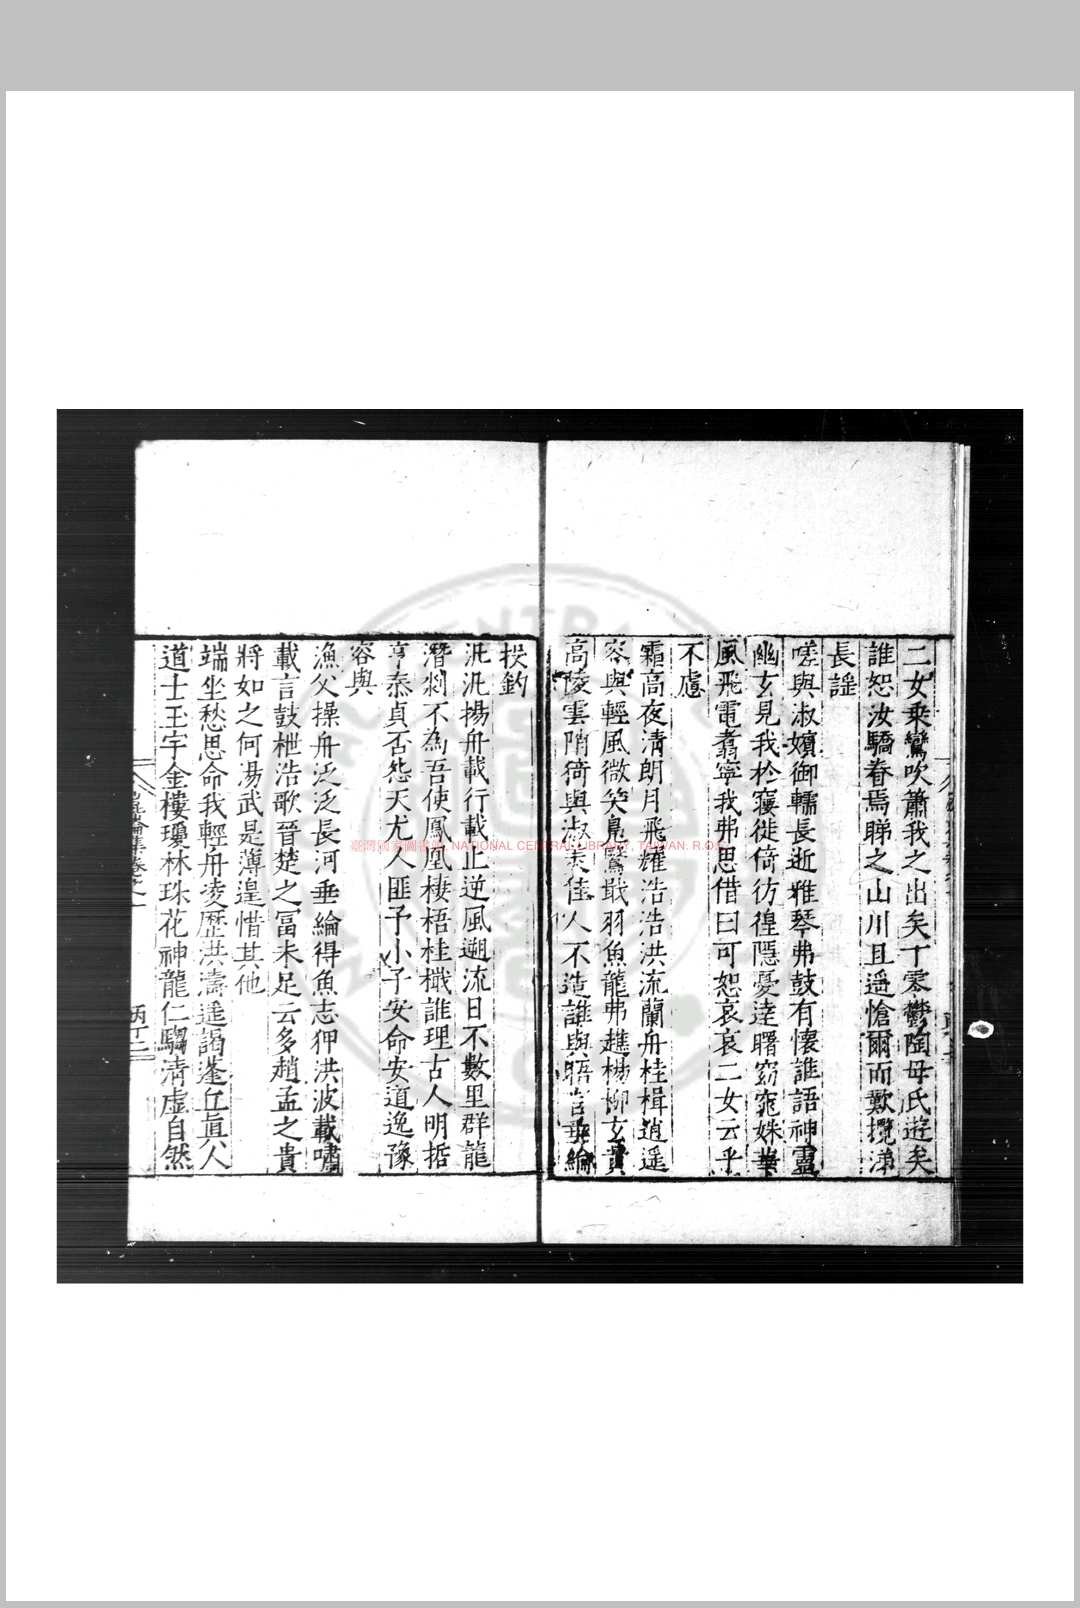 二女乗鸞吹簫我之出矣丁寧鬱陶母氏遊矣
誰恕汝驕眷焉睇之山川且遥愴爾而歎攬涕
長謡
嗟與淑嬪御轜長逝雅琴弗鼓有懷誰語神靈
幽玄見我於寢徙倚彷徨隱憂達曙窈窕姝華
風飛電翥寧我弗思借曰可恕哀哀二女云乎
不慮
霜高夜淸朗月飛耀浩浩洪流蘭舟桂楫逍遥
容與輕風微笑鳧鷖戢羽魚龍弗趫楊柳玄
高陵雲隋猗與淑美佳人不造誰與晤言垂綸
投釣
汎汎揚舟載行載止逆風遡流日不數里群龍
潛剥不為吾使鳳凰棲梧桂檝誰理古人明哲
亨泰貞否怨天尤人匪予小子安命安道逸豫
容與
漁父操舟泛泛長河垂綸得魚志狎洪波載嘯
載言鼓枻浩歌晉楚之冨未足云多趙孟之貴
將如之何湯武是薄遑惜其他
端坐愁思命我輕舟凌歷洪濤遥謁蓬丘眞人
道士玉宇金樓瓊林珠花神龍仁騶淸虚自然
臺灣國家圖書館, NATIONAL CENTRAL LIBRARY, TAIWAN. R.O.C